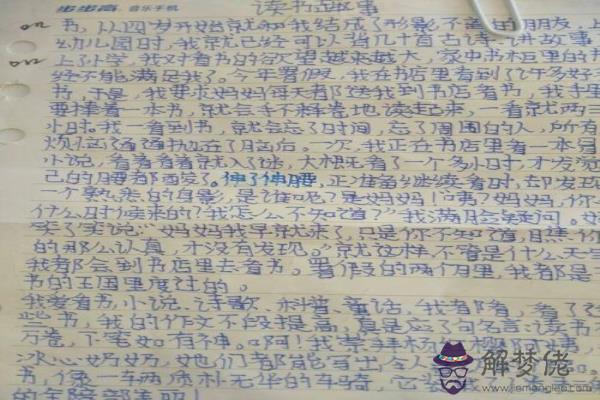 步步高 音乐手机
读书故事
书,从四岁开始就和我结成了形影不离的朋友,上
幼儿园时,我就已经可以背几十首古诗、讲故事
上了小学,我对看书的欲望越来越大,家中书柜里的书
经不能满足我了。今年暑假,我在书店里看到了许多好
书,于是,我要求妈妈每天都送我到书店看书,我手里
要捧着一本书,就会手不释卷地读起来,一看就两三
小时。我一看到书,就会忘了时间,忘了周围的人,所有
烦恼通通抛在了脑后。一次,我正在书店里看一本
小说,看着看着就入了迷,大概看了一个多小时,才发
己的腰都酸了。伸了伸腰,正准备继续看时,却发现
一个熟悉的身影,是谁呢?是妈妈!"咦?妈妈,你
什么时候来的?我怎么不知道?"我满脸疑问。
笑了笑说:"妈妈我早就来了,只是你不知道,瞧你
的那么认真,才没有发现。"就这样,不管是什么天
我都会到书店里去看书。暑假的两个月里,我都是
书的王国里度过的。
我爱看书,小说、诗歌、科普、童话,我都看,看了
些书,我的作文不段提高,真是应了句名言:读书
万卷,下笔如有神。啊!我崇
冰心奶奶,她们都能写出令人
书,像一车两质朴无华的车骑,它
解梦佬
www.jiemenglao.com